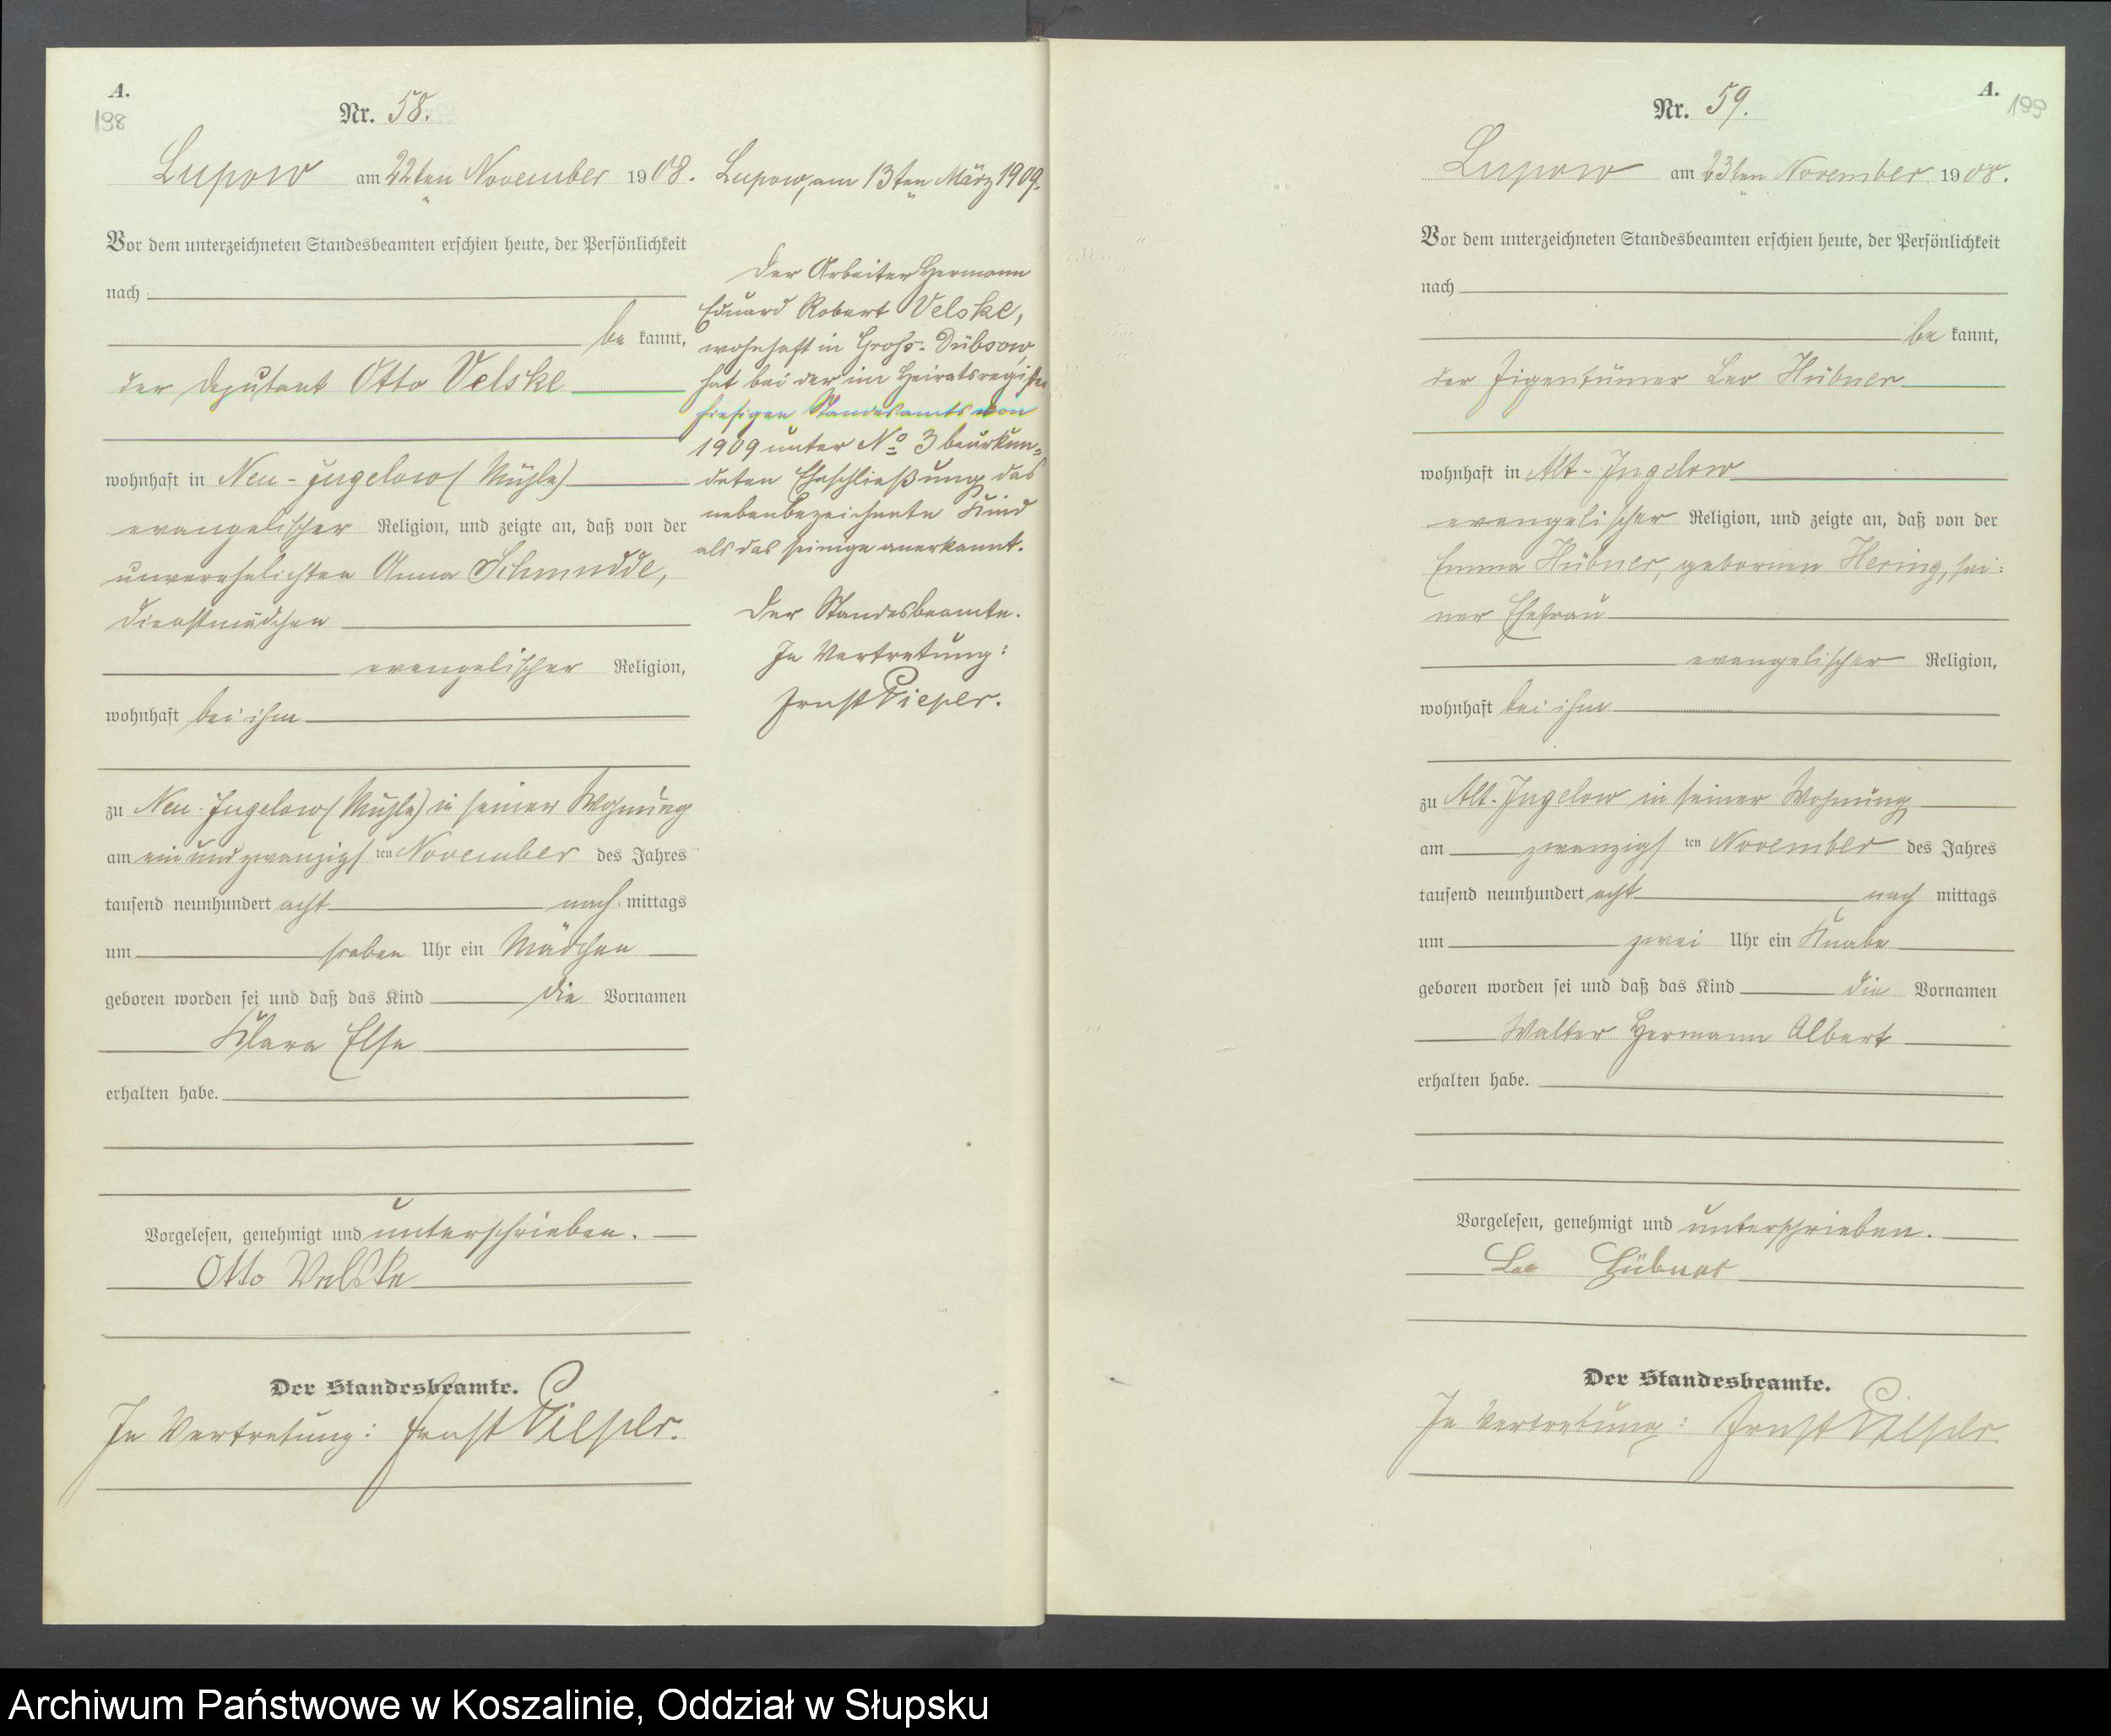 A.
198
Nr. 58.
Lupow am 22ten November 1908.
Vor dem unterzeichneten Standesbeamten erschien heute, der Persönlichkeit
nach
be kannt,
der Deputant Otto Velske
wohnhaft in Neu-Jugelow (Mühle)
evangelischer Religion, und zeigte an, daß von der
unverehelichten Anna Schmudde,
Dienstmädchen
evangelischer Religion,
wohnhaft bei ihm
zu Neu-Jugelow (Mühle) in seiner Wohnung
am ein und zwanzigsten November des Jahres
tausend neunhundert acht nach mittags
um sieben Uhr ein Mädchen
geboren worden sei und daß das Kind die Vornamen
Klara Else
erhalten habe.
Vorgelesen, genehmigt und unterschrieben.
Otto Velske
Der Standesbeamte.
In Vertretung: Ernst Pieper.
Lupow, am 13ten März 1909.
Der Arbeiter Hermann
Eduard Robert Velske,
wohnhaft in Groß-Dübsow,
hat bei der im Heiratsregister
hiesigen Standesamts von
1909 unter No 3 beurkun=
deten Eheschließung das
nebenbezeichnete Kind
als das seinige anerkannt.
Der Standesbeamte.
In Vertretung:
Ernst Pieper.
A.
199
Nr. 59.
Lupow am 23ten November 1908.
Vor dem unterzeichneten Standesbeamten erschien heute, der Persönlichkeit
nach
be kannt,
der Eigentümer Leo Hübner
wohnhaft in Alt-Jugelow
evangelischer Religion, und zeigte an, daß von der
Emma Hübner, geborenen Hering, sei=
ner Ehefrau
evangelischer Religion,
wohnhaft bei ihm
zu Alt-Jugelow in seiner Wohnung
am zwanzigsten November des Jahres
tausend neunhundert acht nach mittags
um zwei Uhr ein Knabe
geboren worden sei und daß das Kind die Vornamen
Walter Hermann Albert
erhalten habe.
Vorgelesen, genehmigt und unterschrieben.
Leo Hübner
Der Standesbeamte.
In Vertretung: Ernst Pieper
Archiwum Państwowe w Koszalinie, Oddział w Słupsku